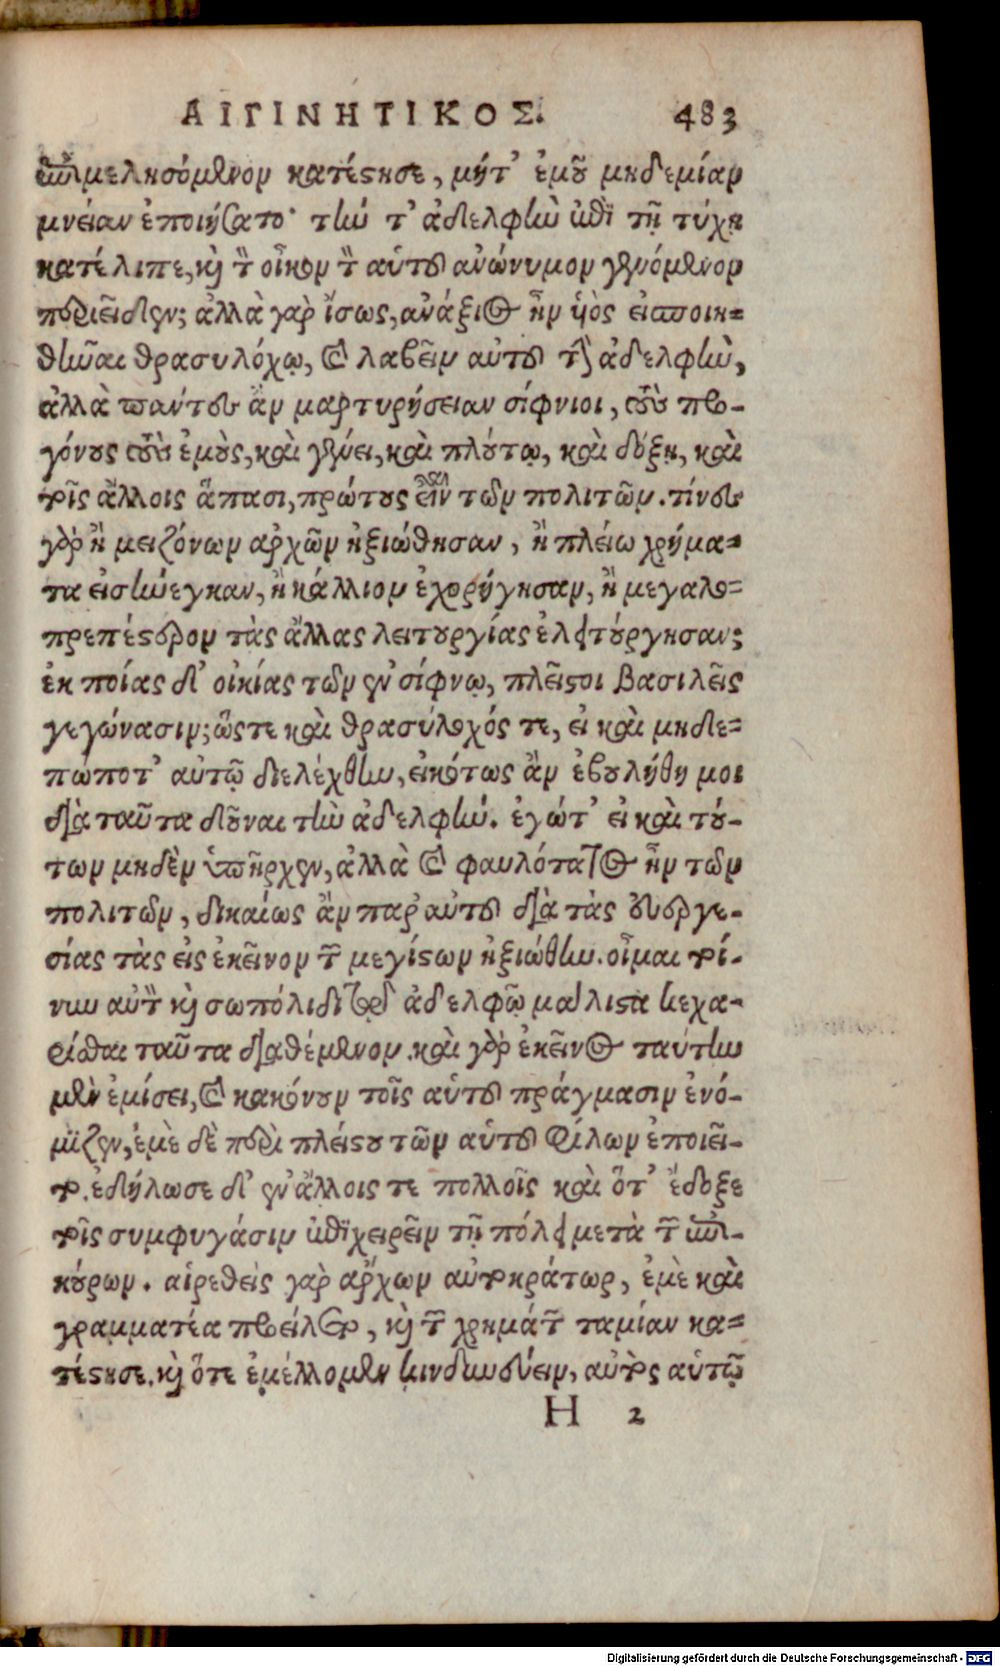 ΑΙΓΙΝΗΤΙΚΟΣ. 483
ἐπιμελησόμενον κατέστησε, μήτ᾽ ἐμοῦ μηδεμίαν
μνείαν ἐποιήσατο· τήν τ᾽ ἀδελφὴν ἐπὶ τῇ τύχῃ
κατέλιπε, καὶ τὸν οἶκον τὸν αὑτοῦ ἀνώνυμον γενόμενον
περιεῖδεν; ἀλλὰ γὰρ ἴσως, ἀνάξιος ἦν ὑὸς εἰσποιη-
θῆναι θρασυλόχῳ, καὶ λαβεῖν αὐτοῦ τὴν ἀδελφὴν,
ἀλλὰ πάντες ἂν μαρτυρήσειαν σίφνιοι, τοὺς προ-
γόνους τοὺς ἐμοὺς, καὶ γένει, καὶ πλούτῳ, καὶ δόξῃ, καὶ
τοῖς ἄλλοις ἅπασι, πρώτους εἶναι τῶν πολιτῶν. τίνες
γὰρ ἢ μειζόνων ἀρχῶν ἠξιώθησαν, ἢ πλείω χρήμα-
τα εἰσήνεγκαν, ἢ κάλλιον ἐχορήγησαν, ἢ μεγαλο-
πρεπέστερον τὰς ἄλλας λειτουργίας ἐλειτούργησαν;
ἐκ ποίας δ᾽ οἰκίας τῶν ἐν σίφνῳ, πλεῖστοι βασιλεῖς
γεγόνασιν; ὥστε καὶ θρασύλοχός τε, εἰ καὶ μηδε-
πώποτ᾽ αὐτῷ διελέχθην, εἰκότως ἂν ἐβουλήθη μοι
διὰ ταῦτα δοῦναι τὴν ἀδελφήν. ἐγώτ᾽ εἰ καὶ τού-
των μηδὲν ὑπῆρχεν, ἀλλὰ καὶ φαυλότατος ἦν τῶν
πολιτῶν, δικαίως ἂν παρ᾽ αὐτοῦ διὰ τὰς εὐεργε-
σίας τὰς εἰς ἐκεῖνον τῶν μεγίστων ἠξιώθην. οἶμαι τοί-
νυν αὐτὸν καὶ σωπόλιδι τῷ ἀδελφῷ μάλιστα κεχα-
ρίσθαι ταῦτα διαθέμενον. καὶ γὰρ ἐκεῖνος ταύτην
μὲν ἐμίσει, καὶ κακόνουν τοῖς αὑτοῦ πράγμασιν ἐνό-
μιζεν, ἐμὲ δὲ περὶ πλείστου τῶν αὑτοῦ φίλων ἐποιεῖ-
το. ἐδήλωσε δ᾽ ἐν ἄλλοις τε πολλοῖς καὶ ὅτ᾽ ἔδοξε
τοῖς συμφυγάσιν ἐπιχειρεῖν τῇ πόλει μετὰ τῶν ἐπι-
κούρων. αἱρεθεὶς γὰρ ἄρχων αὐτοκράτωρ, ἐμὲ καὶ
γραμματέα προείλετο, καὶ τῶν χρημάτων ταμίαν κα-
τέστησε. καὶ ὅτε ἐμέλλομεν κινδυνεύειν, αὐτὸς αὑτῷ
H 2
Digitalisierung gefördert durch die Deutsche Forschungsgemeinschaft - DFG